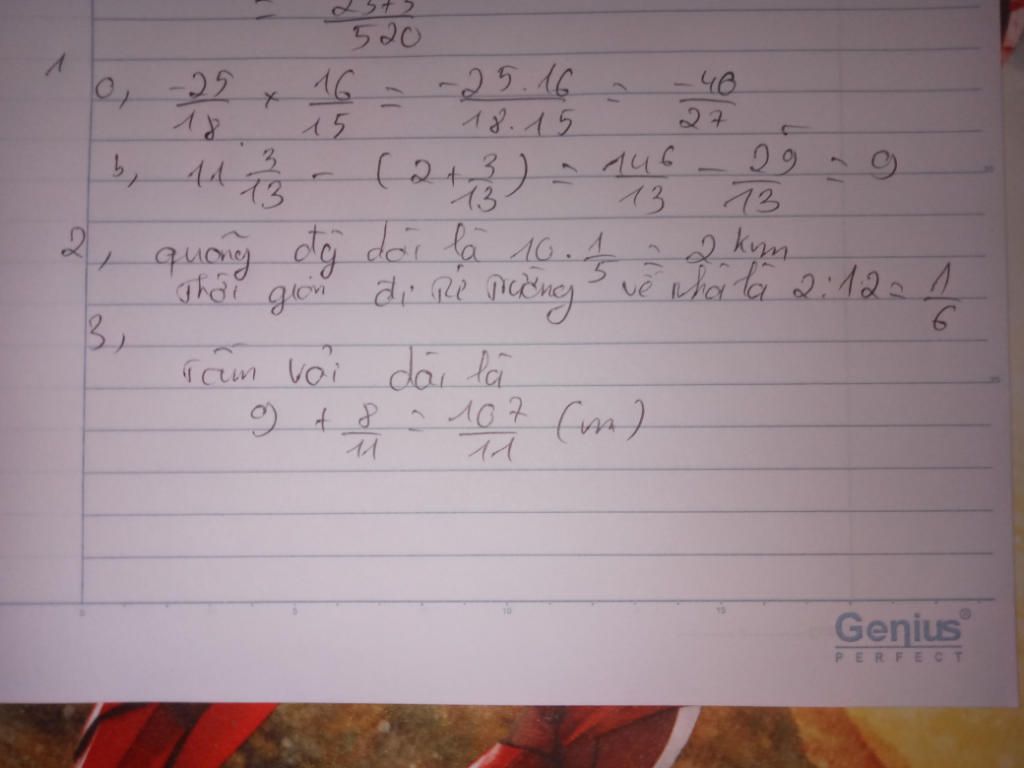 = 2373/520
1 a, -25/18 × 16/15 = -25.16/18.15 = -40/27
b, 11 3/13 - (2 + 3/13) = 146/13 - 29/13 = 9
2, quãng đg dài là 10 . 1/5 = 2 km
Thời gian đi từ trường về nhà là 2:12 = 1/6
3,
Tấm vải dài là
9 + 8/11 = 107/11 (m)
0 5 10 15
Genius®
PERFECT